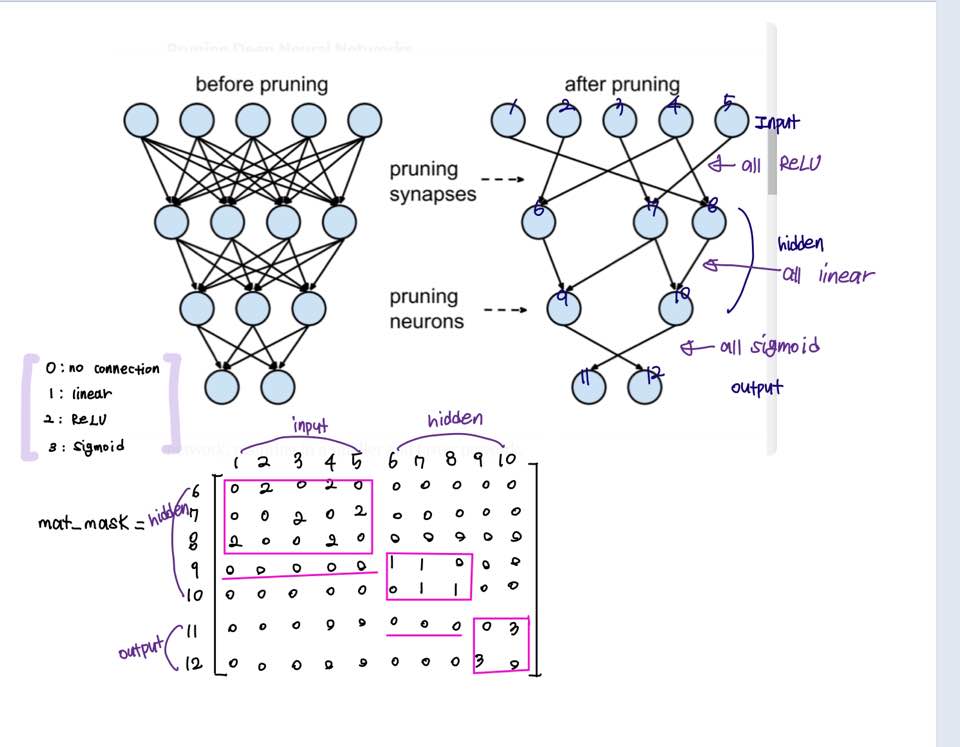 Pruning Deep Neural Networks
before pruning
after pruning
1 2 3 4 5
Input
all ReLU
pruning
synapses
6 7 8
hidden
all linear
pruning
neurons
9 10
all sigmoid
output
11 12
0 : no connection
1 : linear
2 : ReLU
3 : Sigmoid
input
hidden
1 2 3 4 5 6 7 8 9 10
mat_mask =
hidden
6 0 2 0 2 0 0 0 0 0 0
7 0 0 2 0 2 0 0 0 0 0
8 2 0 0 2 0 0 0 0 0 0
9 0 0 0 0 0 1 1 0 0 0
10 0 0 0 0 0 0 1 1 0 0
output
11 0 0 0 0 0 0 0 0 0 3
12 0 0 0 0 0 0 0 0 3 0